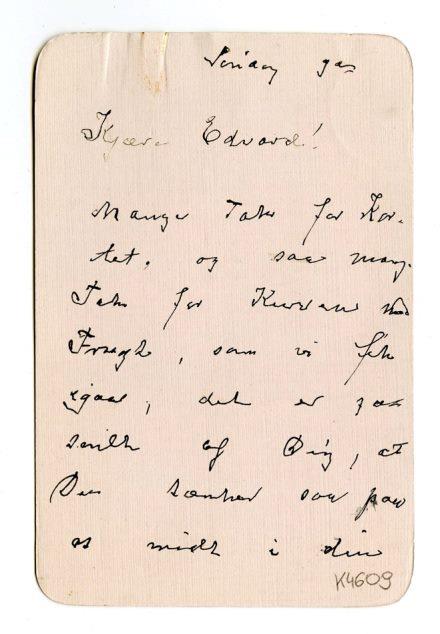 Kjære Edvard!
Mange Tak for Kor-
tet, og saa mange
Tak for Kurven med
Frugt, som vi fik
igaar, det er saa
snilt af Dig, at
Du tænker saa paa
os midt i din
K4609